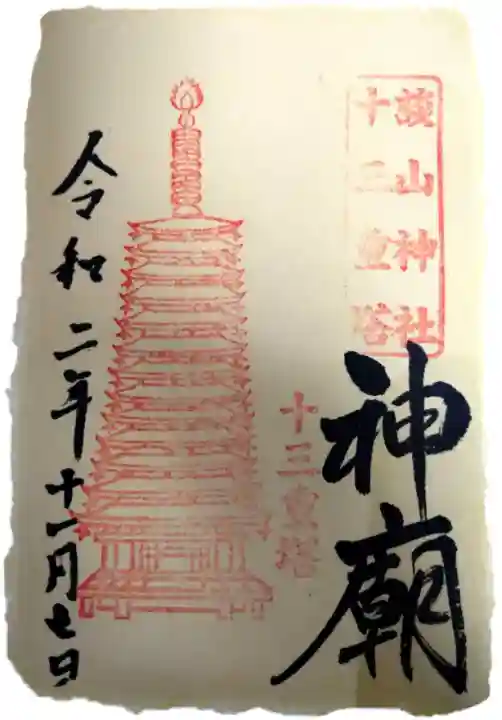 談山神社
十三重塔
神廟
十三重塔
令和二年十一月七日